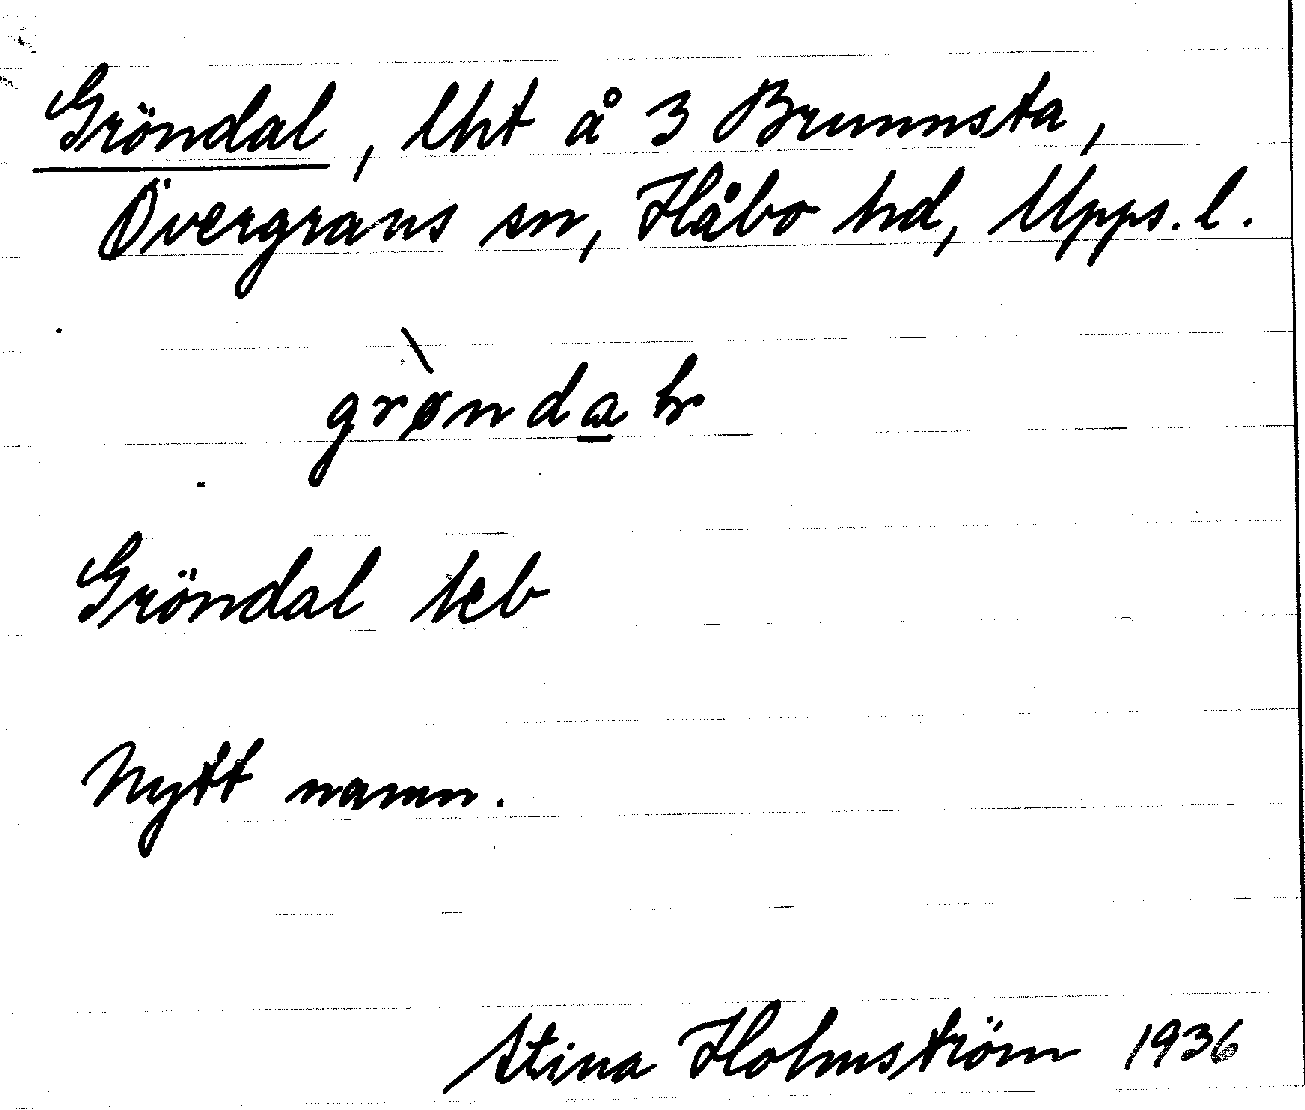 Gröndal, lht å 3 Brunnsta,
Övergrans sn, Håbo hd, Upps. l.
grø̀nda̲
Gröndal keb
Nytt namn.
Stina Holmström 1936